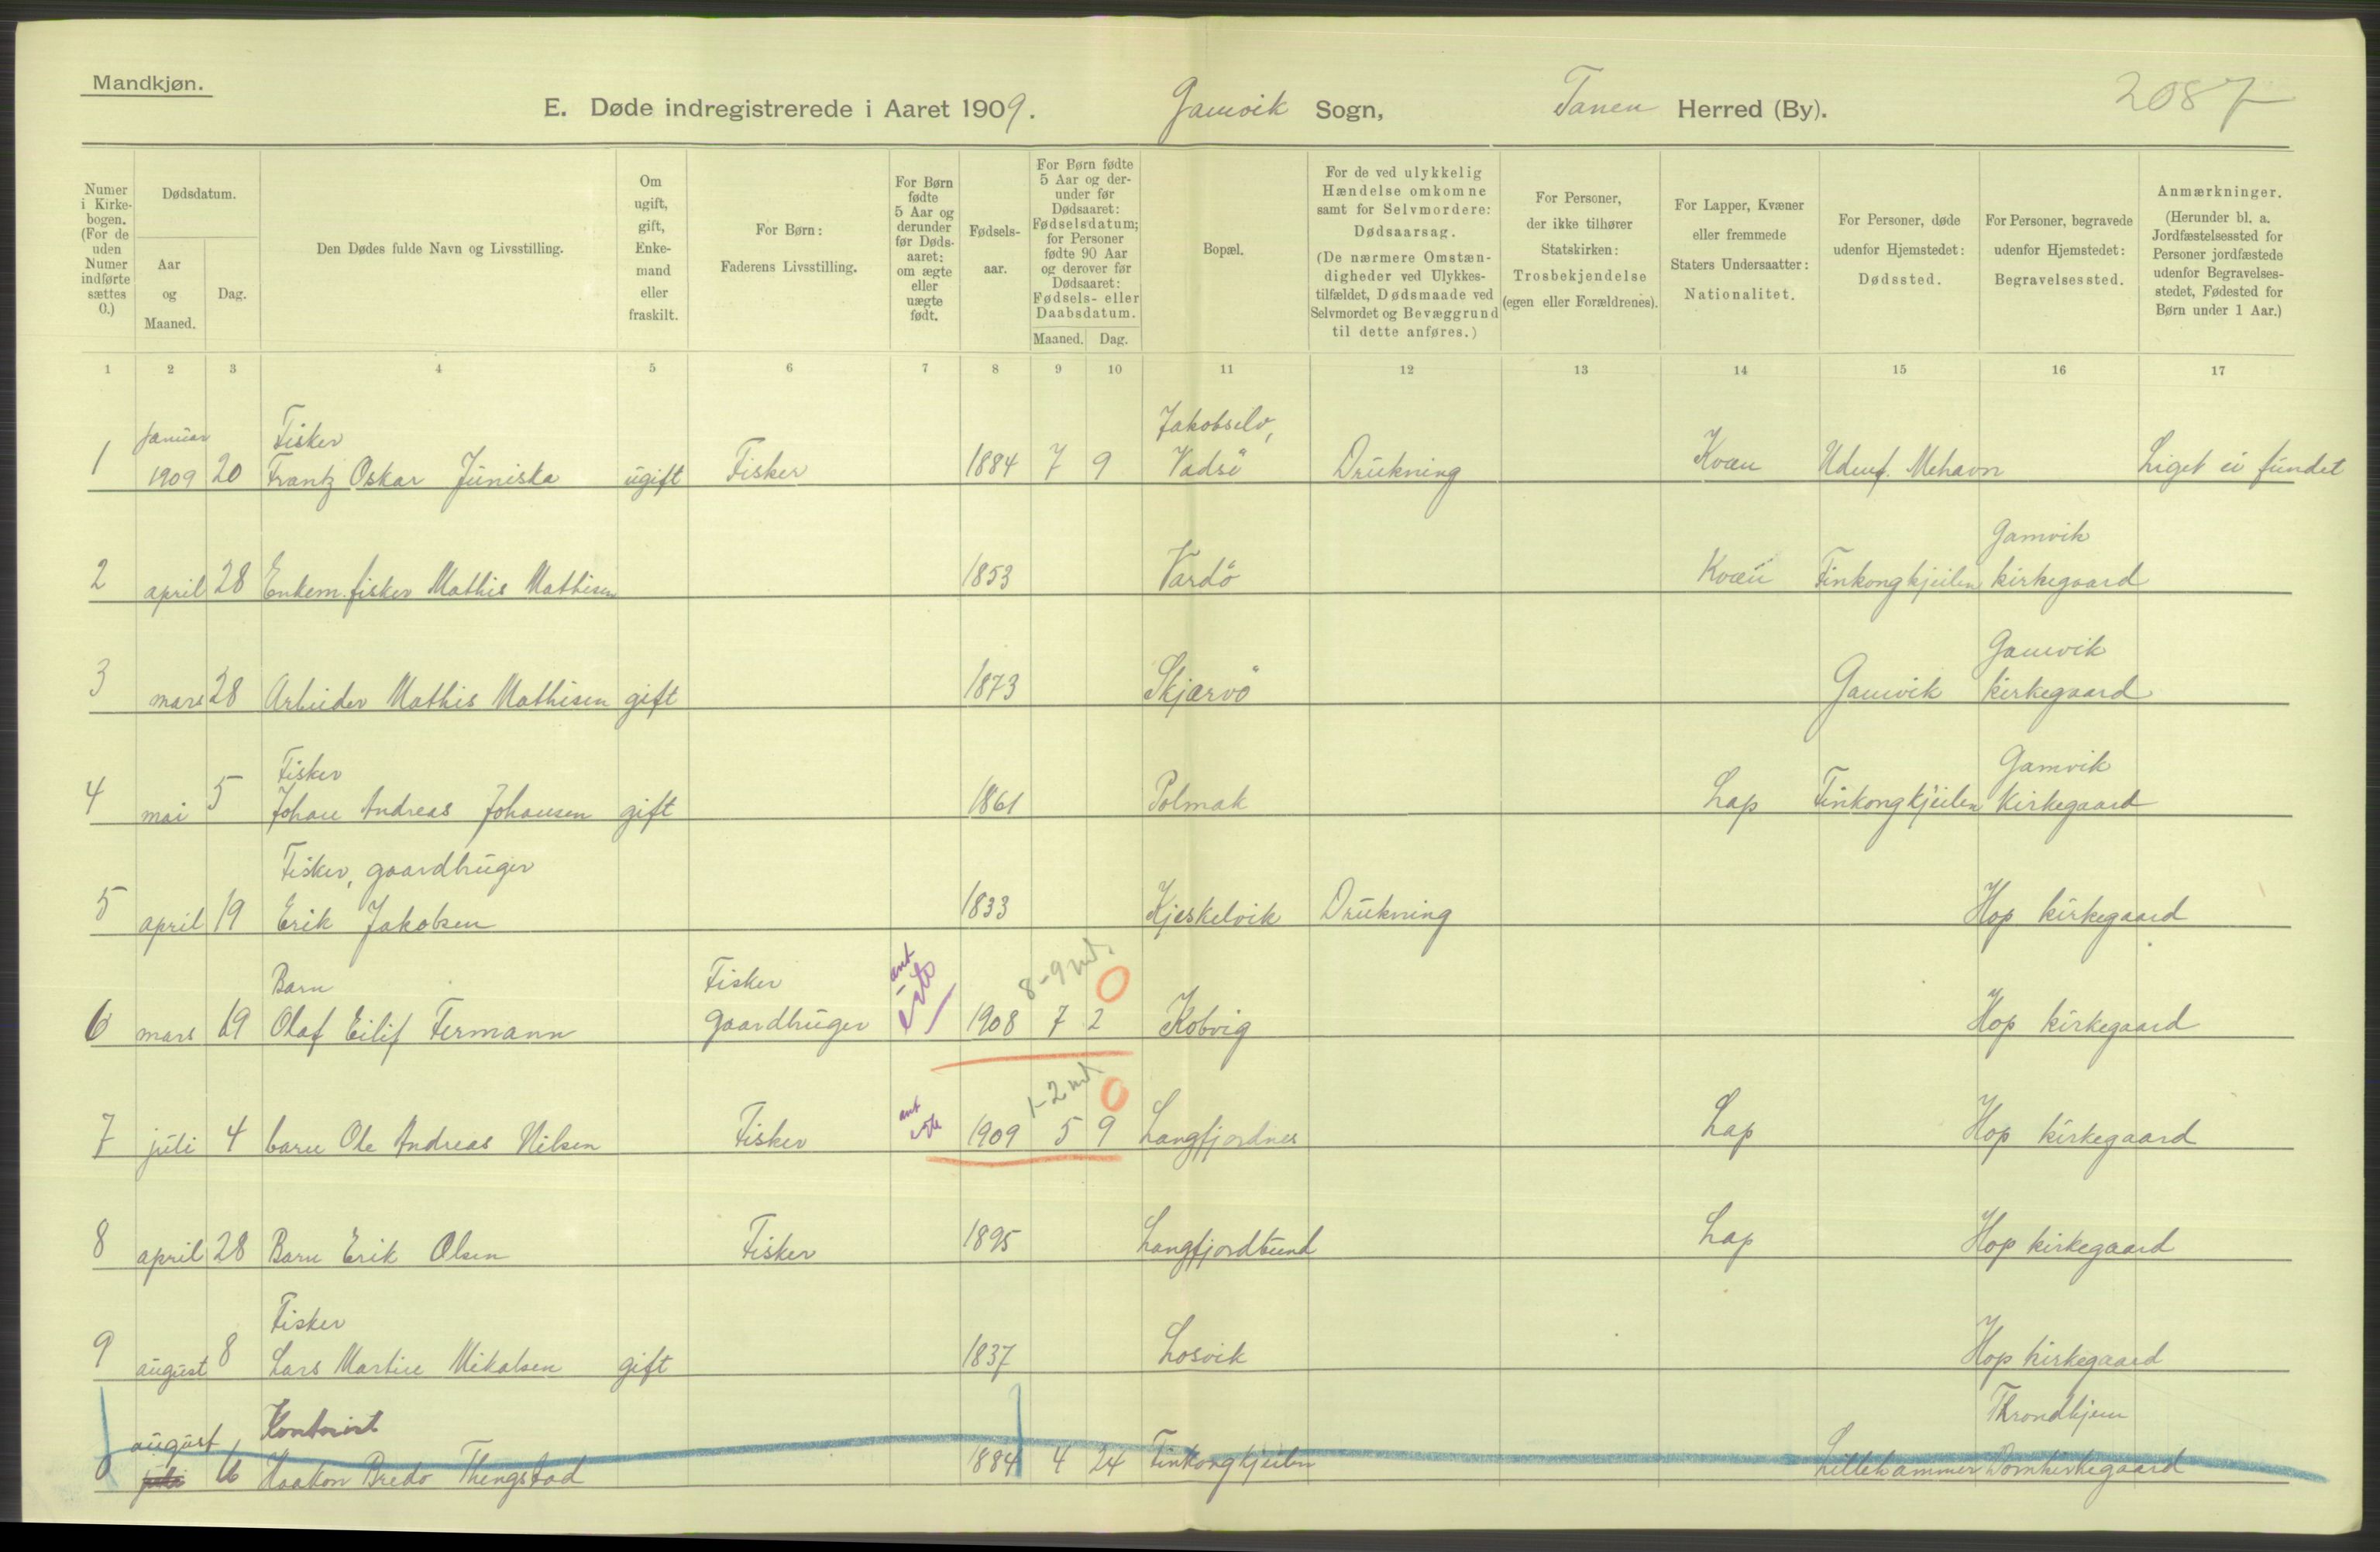 Mandkjøn.
E. Døde indregistrerede i Aaret 1909. Gamvik Sogn, Tanen Herred (By). 2087
Numer i Kirke-bogen. (For de uden Numer indførte sættes 0.)
Dødsdatum.
Aar og Maaned.
Dag.
Den Dødes fulde Navn og Livsstilling.
Om ugift, gift, Enke-mand eller fraskilt.
For Børn: Faderens Livsstilling.
For Børn fødte 5 Aar og derunder før Døds-aaret: om ægte eller uægte født.
Fødsels-aar.
For Børn fødte 5 Aar og der-under før Dødsaaret: Fødselsdatum; for Personer fødte 90 Aar og derover før Dødsaaret: Fødsels- eller Daabsdatum.
Maaned. Dag.
Bopæl.
For de ved ulykkelig Hændelse omkomne samt for Selvmordere: Dødsaarsag. (De nærmere Omstæn-digheder ved Ulykkes-tilfældet, Dødsmaade ved Selvmordet og Bevæggrund til dette anføres.)
For Personer, der ikke tilhører Statskirken: Trosbekjendelse (egen eller Forældrenes).
For Lapper, Kvæner eller fremmede Staters Undersaatter: Nationalitet.
For Personer, døde udenfor Hjemstedet: Dødssted.
For Personer, begravede udenfor Hjemstedet: Begravelsessted.
Anmærkninger. (Herunder bl. a. Jordfæstelsessted for Personer jordfæstede udenfor Begravelses-stedet, Fødested for Børn under 1 Aar.)
1 2 3 4 5 6 7 8 9 10 11 12 13 14 15 16 17
Januar Fisker Jakobselv,
1 1909 20 Frantz Oskar Juniska ugift Fisker 1884 7 9 Vadsö Drukning Kvæn Udenf. Mehavn Liget ei fundet
Gamvik
2 april 28 Enkem. fisker Mathis Mathisen 1853 Vardö Kvæn Finkongkjeilen kirkegaard
Gamvik
3 mars 28 Arbeider Mathis Mathisen gift 1873 Skjærvö Gamvik kirkegaard
Fisker Gamvik
4 mai 5 Johan Andreas Johansen gift 1861 Polmak Lap Finkongkjeilen Kirkegaard
Fisker, gaardbruger
5 april 19 Erik Jakobsen 1833 Kjeskelvik Drukning Hop kirkegaard
Barn Fisker ant 8-9 md. 0
6 mars 19 Olaf Eilif Fermann gaardbruger ekte 1908 7 2 Kobvig Hop kirkegaard
ant 1-2 md. 0
7 juli 4 barn Ole Andreas Nilsen Fisker ekte 1909 5 9 Langfjordnes Lap Hop kirkegaard
8 april 28 Barn Erik Olsen Fisker 1895 Langfjordbund Lap Hop kirkegaard
Fisker
9 august 8 Lars Martin Mikalsen gift 1837 Losvik Hop kirkegaard
august Kontorist Throndhjem
0 juli 16 Haakon Bredo Thengstad 1884 4 24 Finkongkjeilen Lillehammer Domkirkegaard